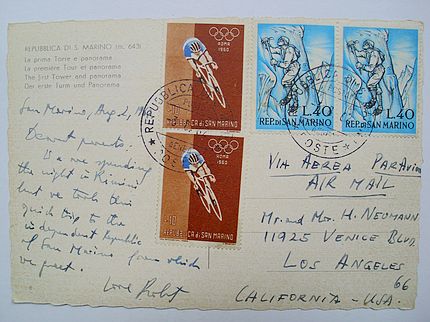 REPUBBLICA DI S. MARINO (m. 643)
La prima Torre e panorama
La première Tour et panorama
The first Tower and panorama
Der erste Turm und Panorama
San Marino, Aug 2,
Dearest parents,
we are spending
the night in Rimini
but we took this
quick trip to the
independent Republic
of San Marino from which
we greet.
Love Robert
ROMA
1960
REPUBBLICA di SAN MARINO
ROMA
1960
L.10
REPUBBLICA di SAN MARINO
L.40
REP. DI SAN MARINO
L.40
REP. DI SAN MARINO
REPUBBLICA
POSTE
POSTE
VIA AEREA PAR AVION
AIR MAIL
Mr and Mrs. H. NEUMANN
11925 VENICE BLVD.
LOS ANGELES
66
CALIFORNIA - USA.